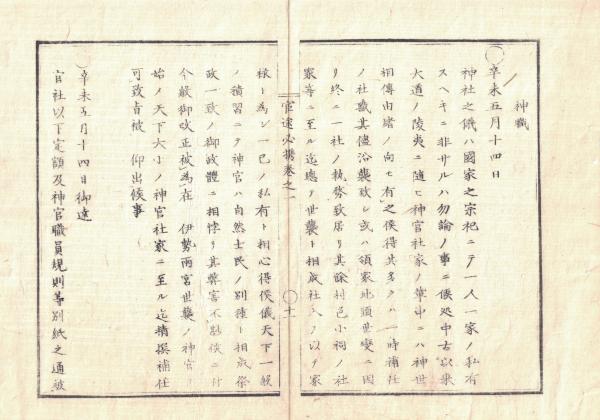 神職
〇辛未五月十四日
神社之儀ハ國家之宗祀ニテ一人一家ノ私有
スヘキニ非サルハ勿論ノ事ニ候処中古以来
大道ノ陵夷ニ随ヒ神官社家ノ輩中ニハ神世
相傳由緒ノ向モ有之候得共多クハ一時補任
ノ社職其儘沿襲致シ或ハ領家地頭世變ニ因
リ終ニ一社ノ執務致居リ其餘村邑小祠ノ社
家等ニ至ル迄總テ世襲ト相成社入ヲ以テ家
官途必携巻之一
〇十一
禄ト為シ一己ノ私有ト相心得候儀天下一般
ノ積習ニテ神官ハ自然士民ノ別種ト相成祭
政一致ノ御政體ニ相悖リ其弊害不尠候ニ付
今般御改正被為在 伊勢兩宮世襲ノ神官ヲ
始メ天下大小ノ神官社家ニ至ル迄精撰補任
可致旨被 仰出候事
〇辛未五月十四日御達
官社以下定額及神官職員規則等別紙之通被